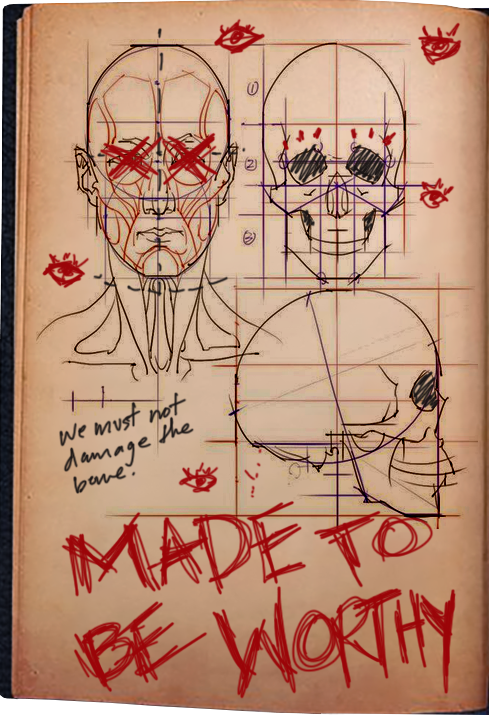 ①
②
③
We must not
damage the
bone.
MADE TO
BE WORTHY